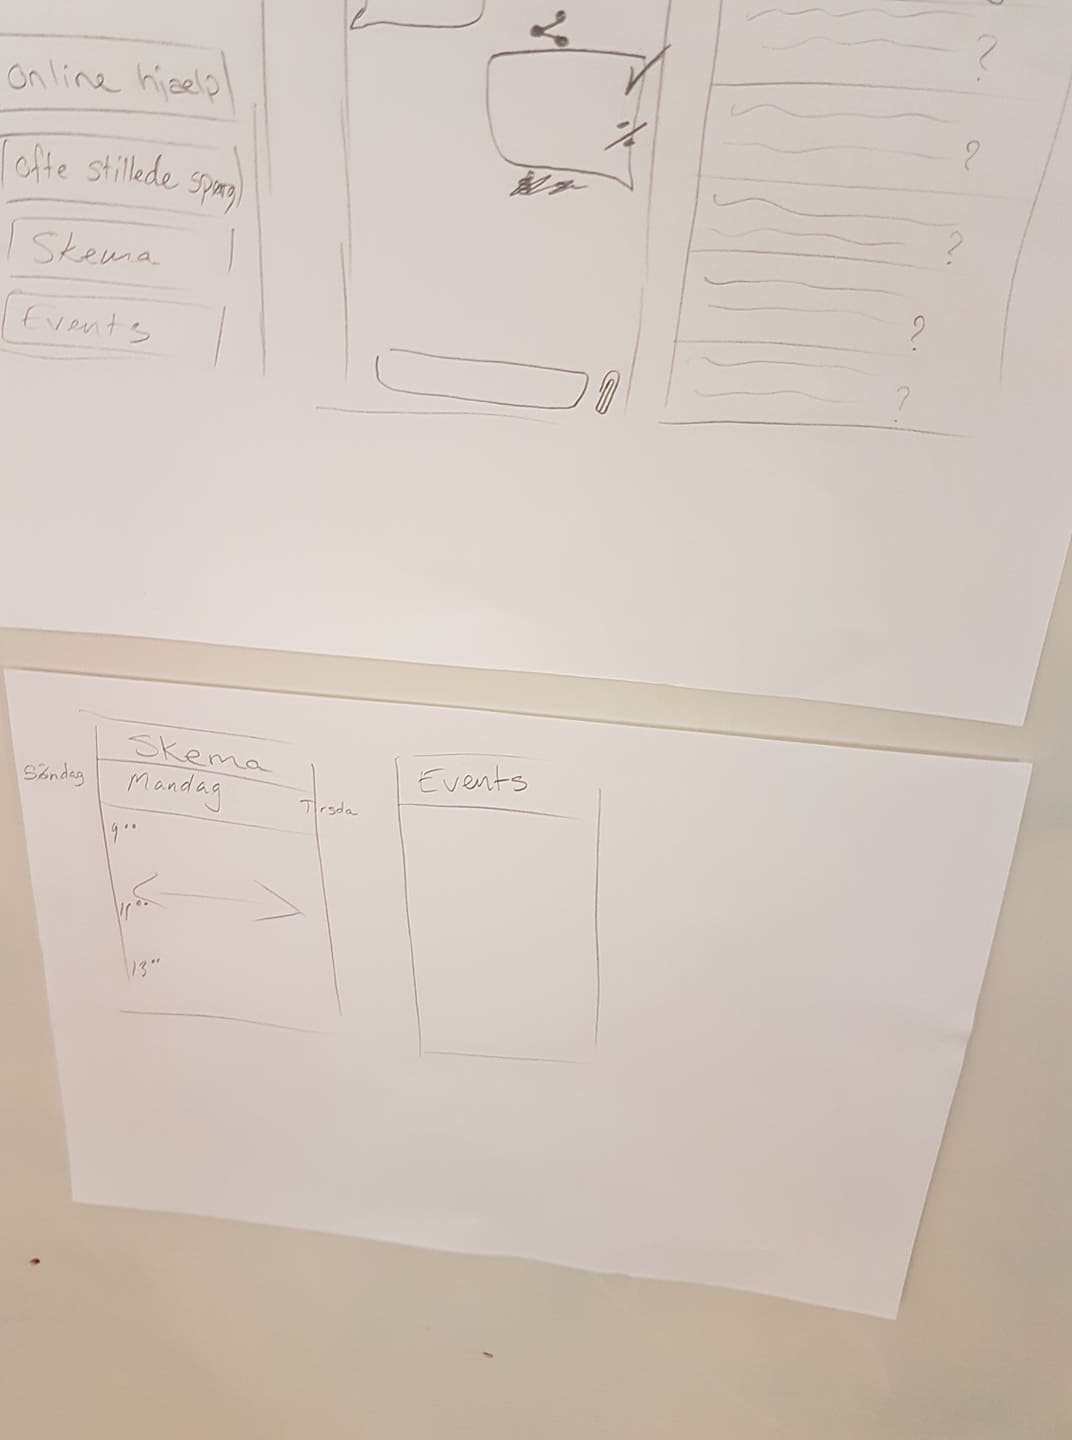 online hjælp
Ofte stillede spørg
Skema
Events
?
?
?
?
?
Skema
Søndag
Mandag
Tirsda
9⁰⁰
11⁰⁰
13⁰⁰
Events